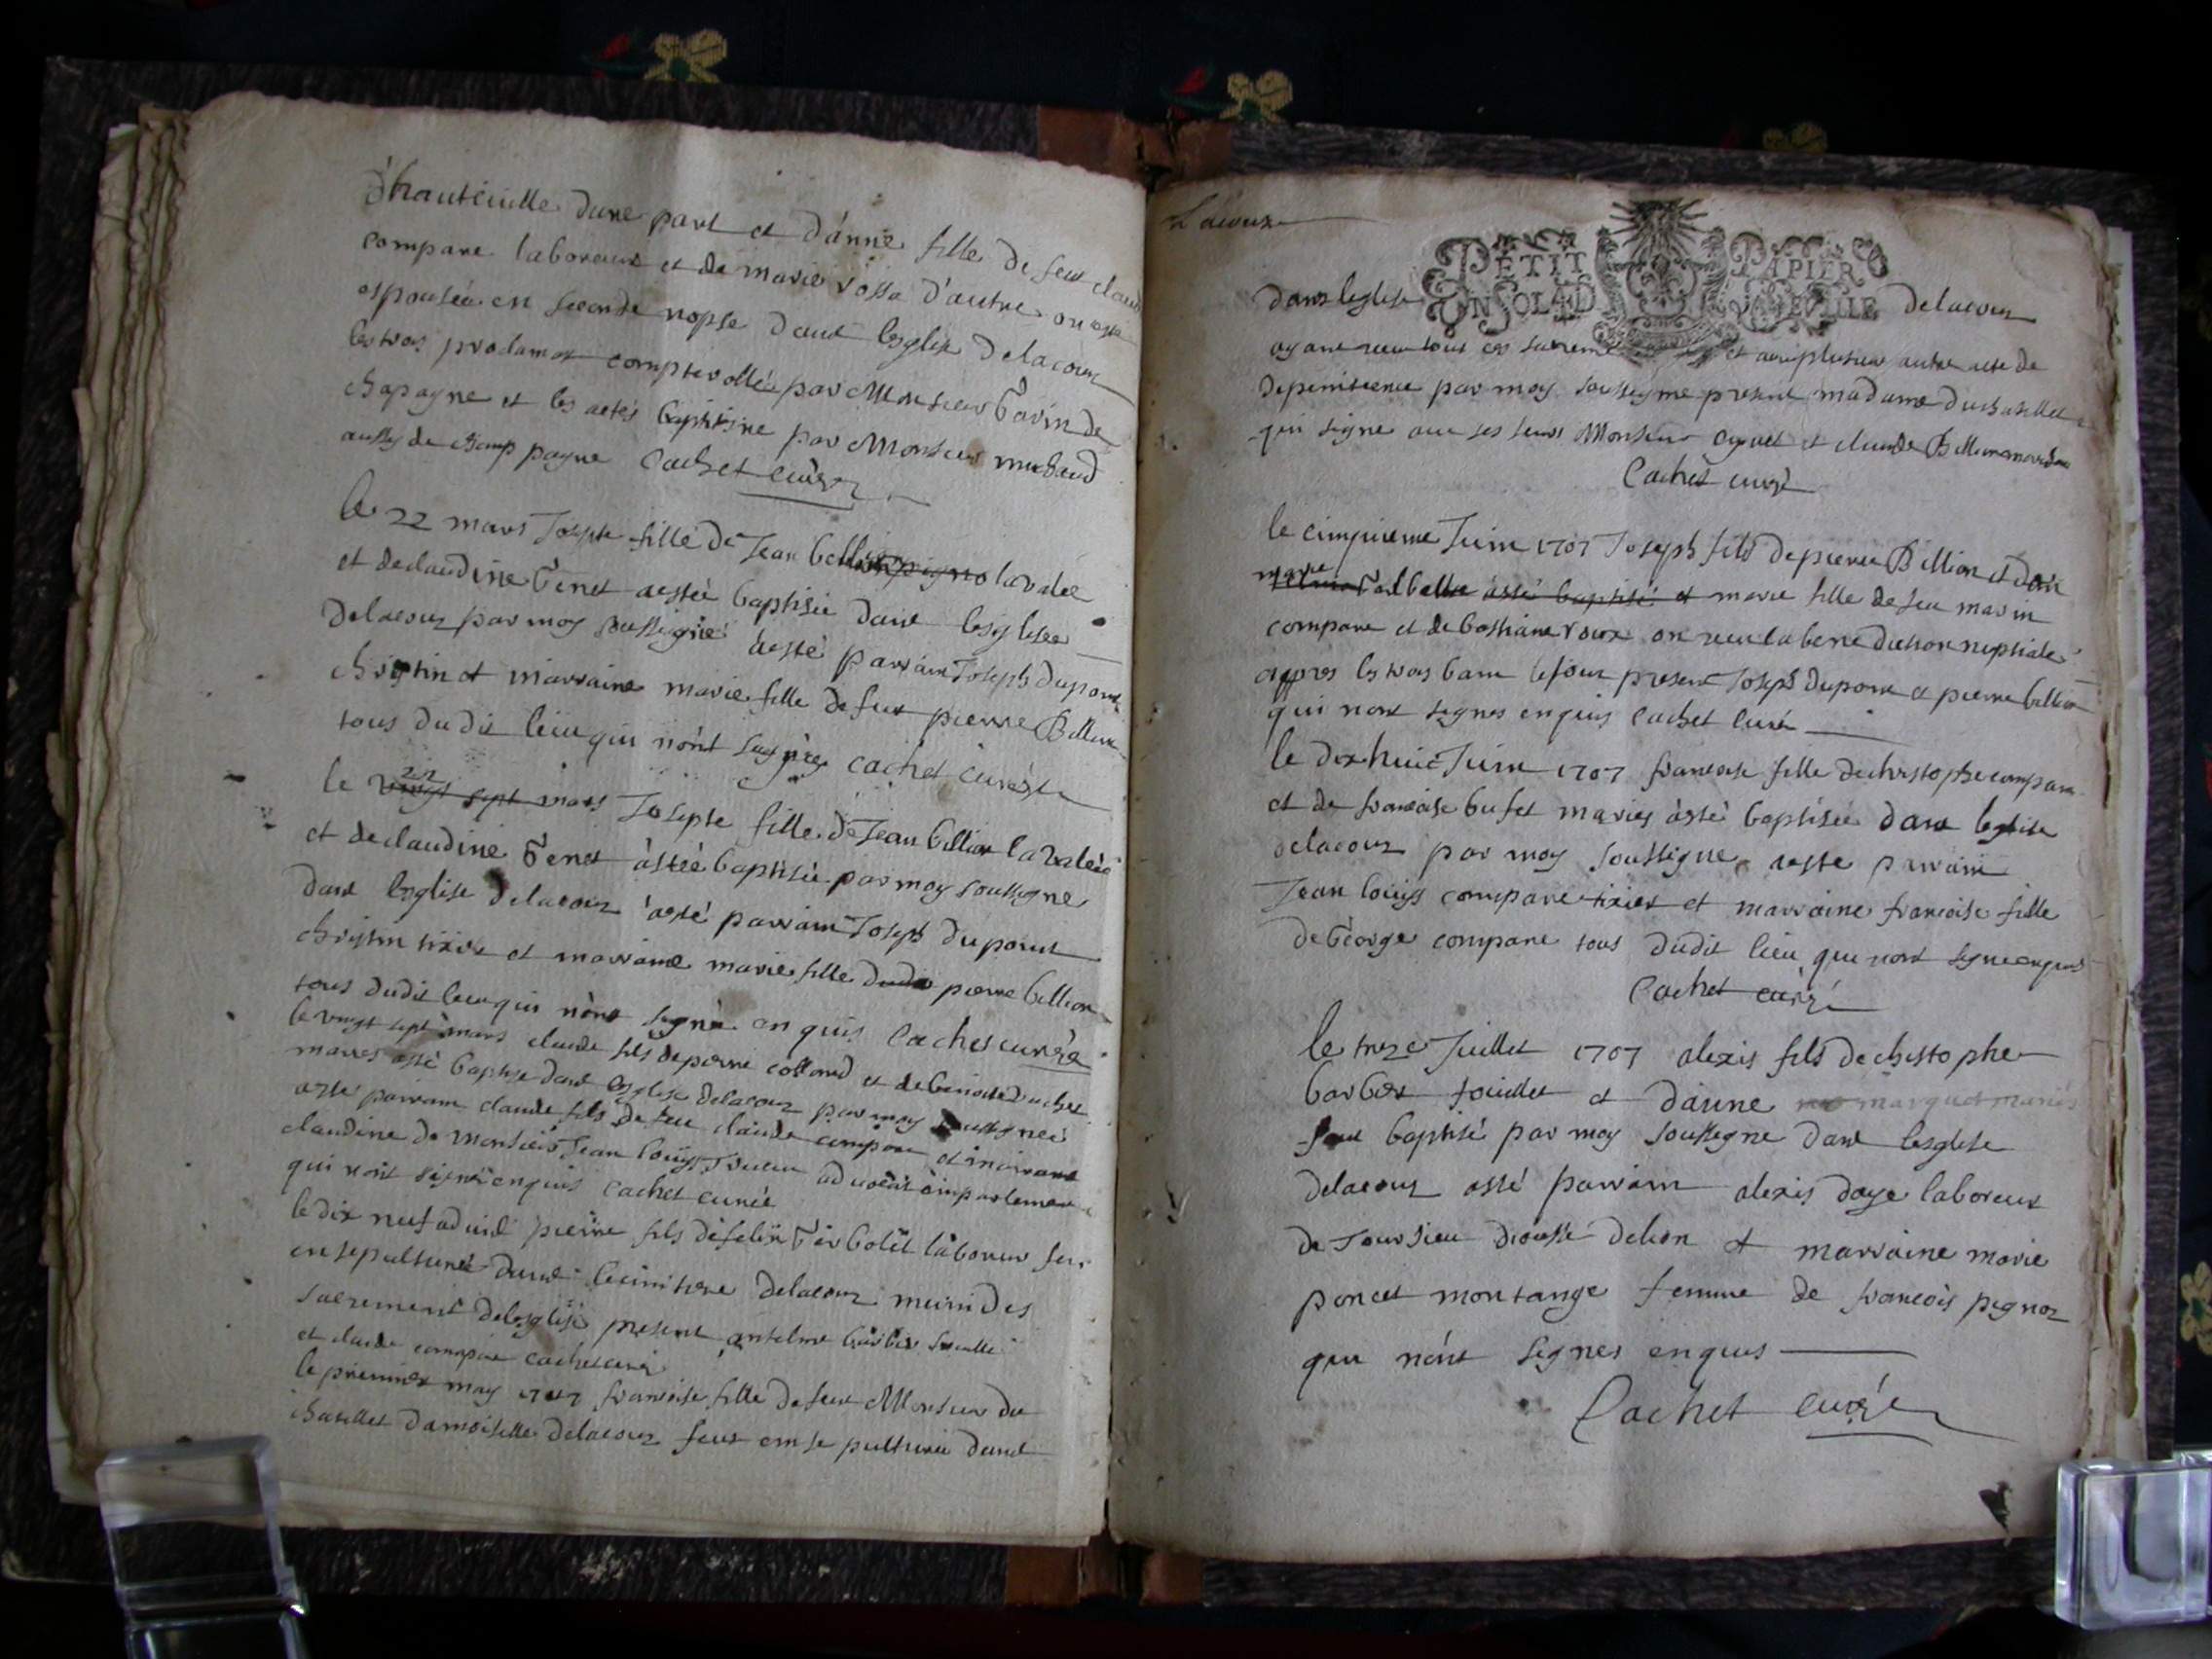 d'hauteville dune part et d'anne fille de feu claud
compare laboreur et de marie rossa d'autre on este
espousée en seconde nopse dans lesglise delacoux
les trois proclamat par Monsieur de
chapagne et les actes baptisme par Monsieur michaud
aussy de champpagne Cachet curéz
le 22 mars Josepte fille de Jean la valee
et de claudine Genet aestée baptisée dans lesglise
delacoux par moy soussigné àesté parrain Joseph dupont
christin et marraine marie fille de feu pierre Billion
tous du dit lieu qui n'ont signée cachet curé
le vingt sept mars Josepte fille de Jean billion la valée
et de claudine Genet àestée baptisée par moy soussigne
dans lesglise delacoux àesté parrain Joseph dupont
christin tixier et marraine marie fille dudit pierre billion
tous dudit lieu qui nont signé en quis Cachet curée
le vingt sept mars claude fils de pierre et de benoite
maries àesté baptisé dans lesglise delacoux par moy soussignée
aeste parrain claude fils de feu claude compare et marraine
claudine de Monsieur Jean louys advocat à parlement
qui n'ont signé enquis cachet curée
le dix neuf pierre fils de felix laboreur feu
ensepulturé dans le cimitiere delacoux muni des
sacrement delesglise present antelme barbet
et claude compare cachet curé
le premier may 1707 francoise fille de feu Monsieur du
chatellet damoiselle delacoux feut ensepulturée dans
Lacoux
PETIT PAPIER
UN SOL 4D LA FEVILLE
dans leglise delacoux
ayant receu tous ces sacrement et aux plusieurs autre acte de
depenitence par moy soussigne present madame duchatellet
qui signe avec ses seurs Monsieur et claude Billion
Cachet curé
le cinquieme Juin 1707 Joseph fils de pierre Billion et
marie àsté baptisé et marie fille de feu marin
compare et de bastiane roux on receu la benediction nuptiale
appres les trois banc le jour present Joseph dupont et pierre billion
qui nont signes enquis Cachet curé
le dix huic Juin 1707 francoise fille de christophe compare
et de francoise bufet maries àsté baptisée dans leglise
delacoux par moy soussigne aeste parrain
Jean louys compare tixier et marraine francoise fille
de George compare tous dudit lieu qui nont signe enquis
Cachet curé
le treze Juillet 1707 alexis fils de christophe
barbet et d'anne marquet maries
feut baptisé par moy soussigne dans lesglise
delacoux asté parrain alexis daye laboreur
de et marraine marie
poncet montange femme de francois pignoz
qui n'ont signes enquis
Cachet curé